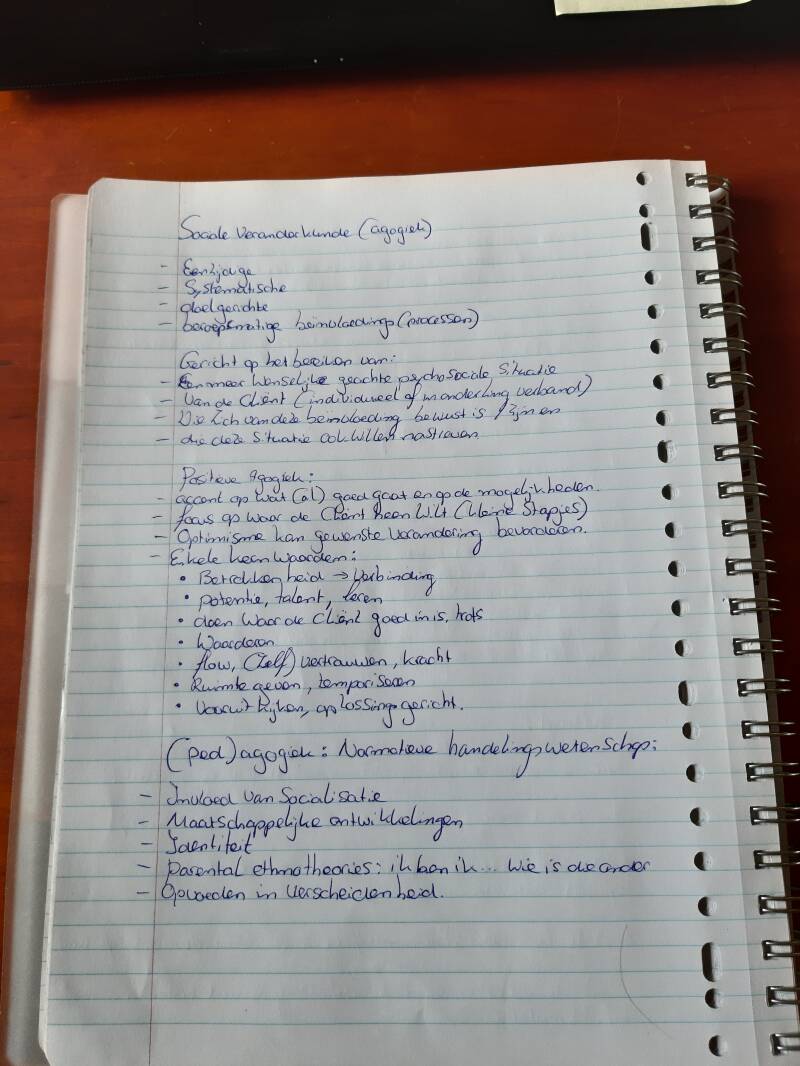 Sociale veranderkunde (agogiek)
- Eenzijdige
- Systematische
- doelgerichte
- beroepsmatige beïnvloedings(processen)
Gericht op het bereiken van:
- Een meer wenselijke geachte psychosociale situatie
- Van de Cliënt (individueel of in onderling verband)
- Die zich van deze beïnvloeding bewust is / zijn en
- die deze situatie ook willen nastreven.
Positieve Agogiek:
- accent op wat (al) goed gaat en op de mogelijkheden.
- focus op waar de Cliënt heen wilt (kleine stapjes)
- Optimisme kan gewenste verandering bevorderen.
- Enkele kernwaarden:
• Betrokkenheid → Verbinding
• potentie, talent, leren
• doen waar de Cliënt goed in is, trots
• Waarderen
• flow, (zelf) vertrouwen, kracht
• Ruimte geven, temporiseren
• Vooruit kijken, oplossingsgericht.
(ped)agogiek: Normatieve handelingswetenschap:
- Invloed van Socialisatie
- Maatschappelijke ontwikkelingen
- Identiteit
- parental ethnotheories: ik ben ik... wie is die ander
- Opvoeden in verscheidenheid.